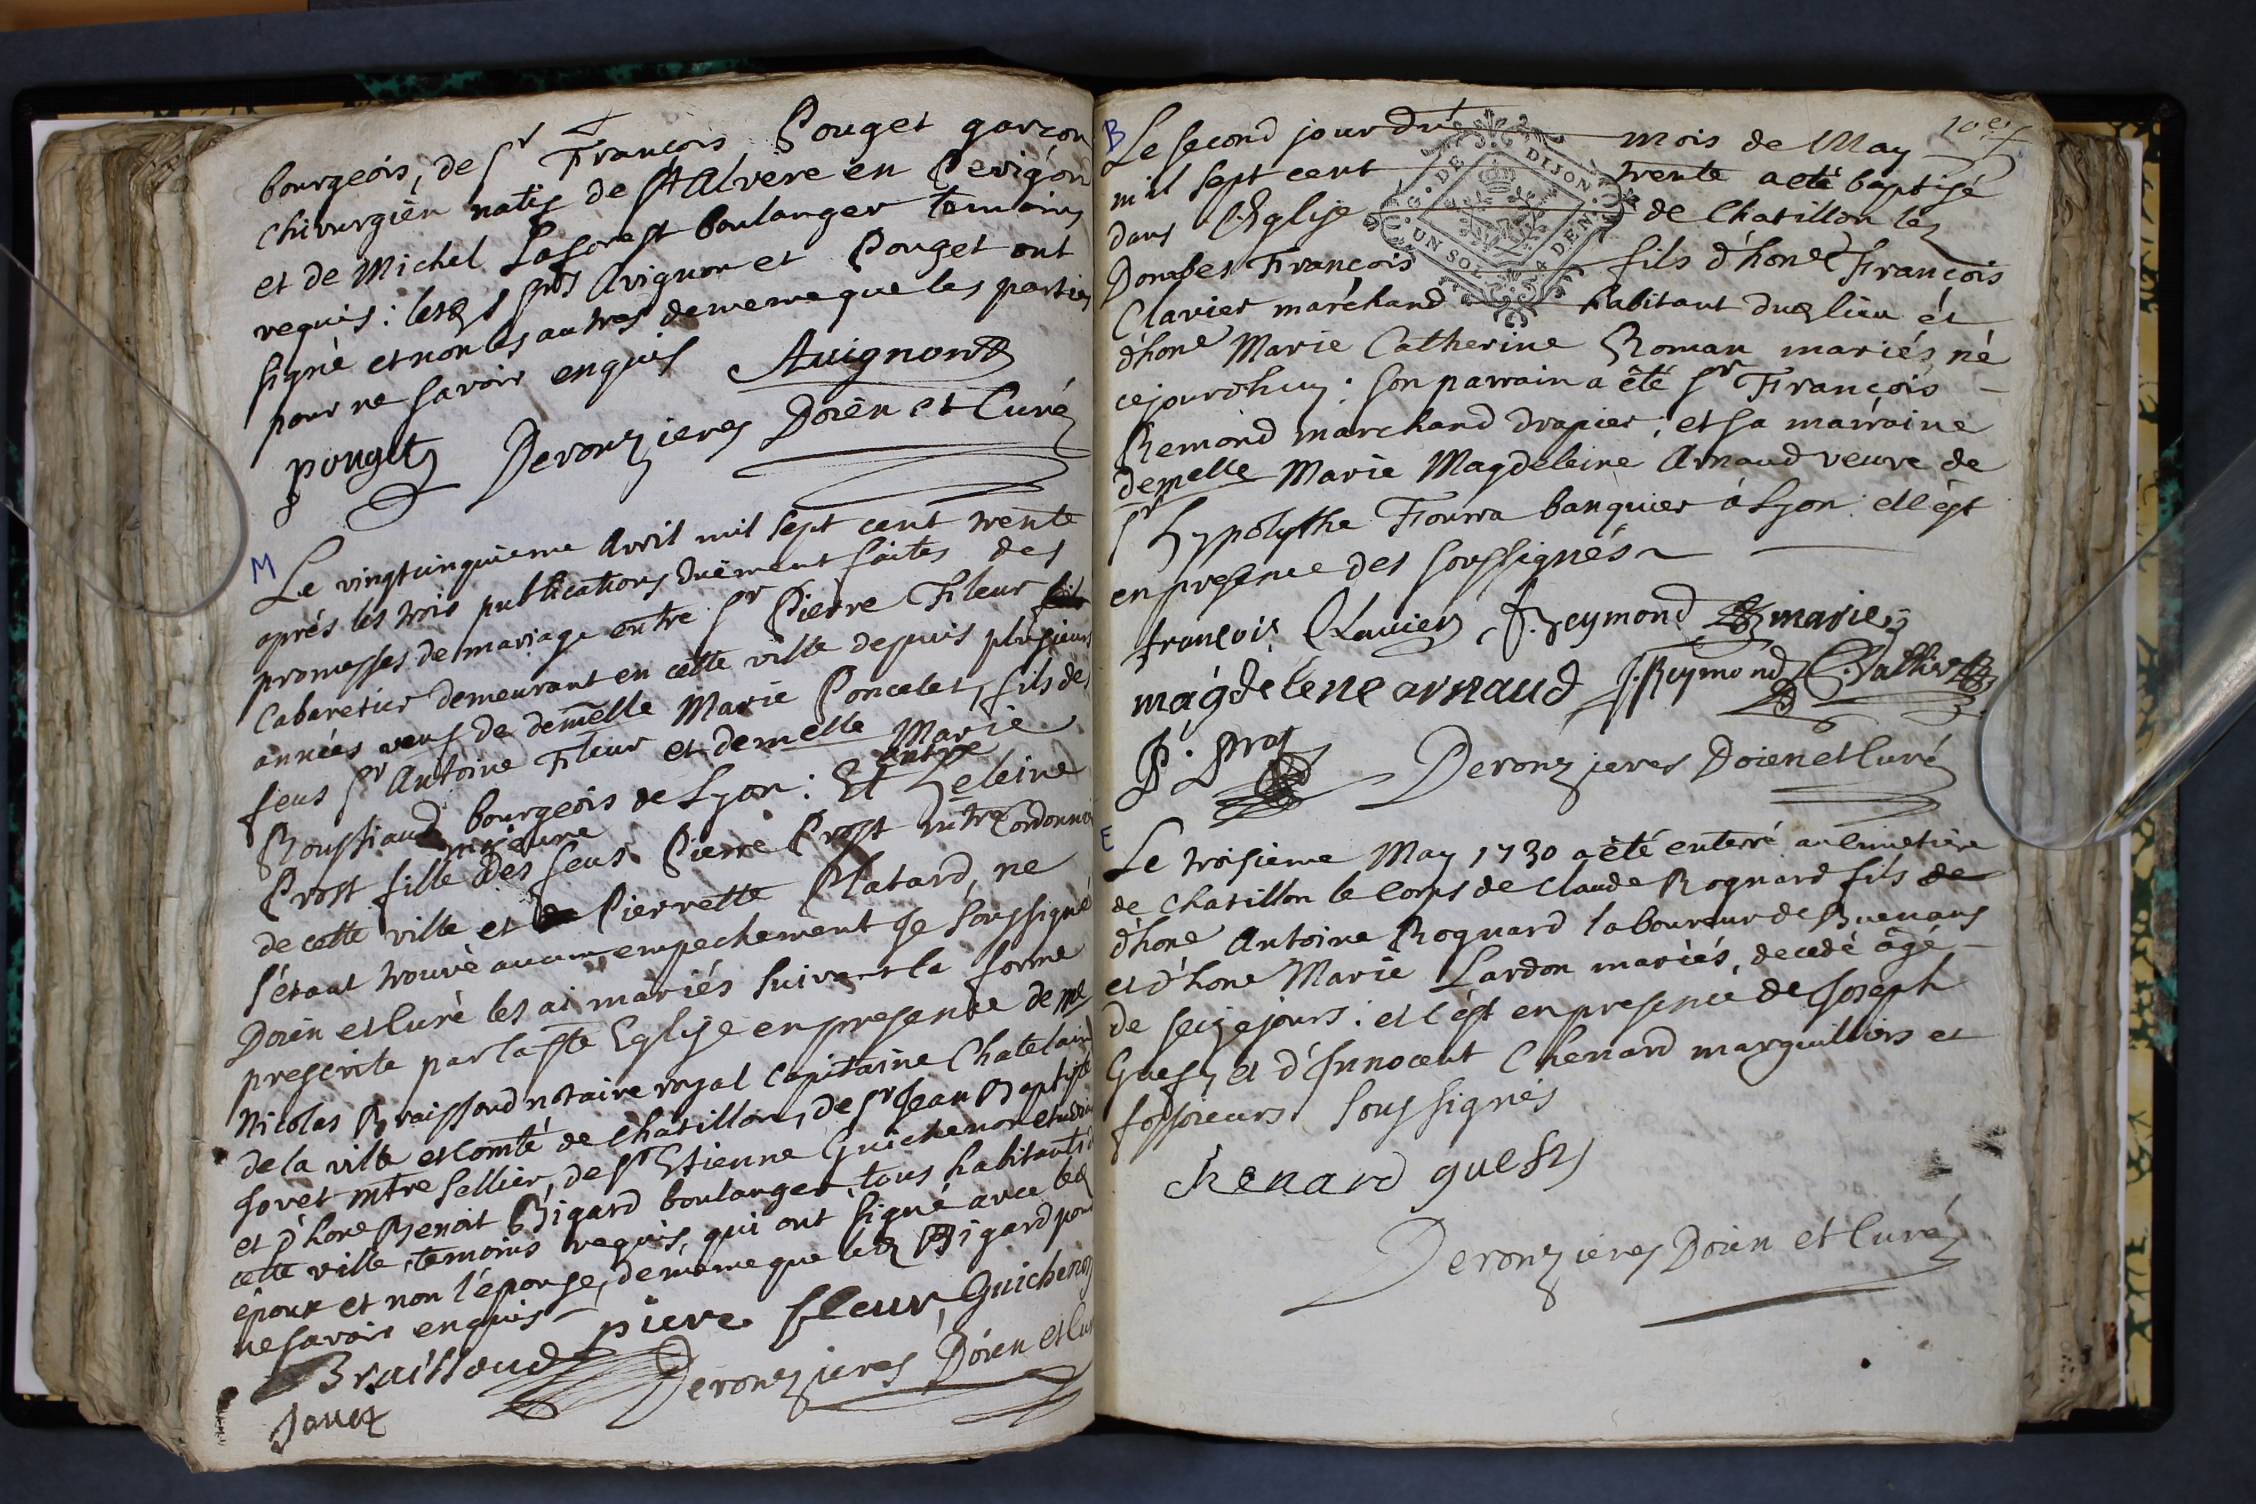 bourgeois, de Sr François Pouget garçon
chirurgien natif de St Alvere en Perigord
et de Michel Laforest boulanger temoins
requis : lesd Srs Avignon et Pouget ont
signé et non les autres de meme que les parties
pour ne savoir enquis Avignon
pouget Deronzieres Doien et Curé
M
Le vingtcinquieme Avril mil sept cent trente
aprés les trois publications duëment faites des
promesses de mariage entre Sr Pierre Fleur
Cabaretier demeurant en cette ville depuis plusieurs
années veuf de demelle Marie Poncelet, fils des
feus Sr Antoine Fleur et demelle Marie
Roussiaud bourgeois de Lyon : Et entre Heleine
Prost fille majeure des feus Pierre Prost mtre Cordonnier
de cette ville et Pierrette Platard, ne
s'étant trouvé aucun empechement Je soussigné
Doien et Curé les ai mariés suivant la forme
prescrite par la Ste Eglise en presence de me
Nicolas Braissoud notaire royal capitaine Chatelain
de la ville et Comté de Chatillon, de Sr Jean Baptiste
Jovet mtre Sellier, de Sr Etienne Guichenon
et d'hone Benoit Bigard boulanger tous habitants
cette ville, temoins requis, qui ont signé avec led
époux et non l'épouse, de meme que led Bigard pour
ne savoir enquis
piere fleur, Guichenon
Braissoud Deronzieres Doien et Cu
Jovet
10e
B
Le second jour du mois de May
mil sept cent trente a eté baptisé
dans l'Eglise de Chatillon les
Dombes François fils d'hone François
Clavier marchand habitant dud lieu et
d'hone Marie Catherine Roman mariés, né
cejourd'huy : son parrain a êté Sr François
Remond marchand drapier ; et sa marraine
demelle Marie Magdeleine Arnaud veuve de
Sr hypolythe Fourra banquier à Lyon : et l'est
en presence des soussignés
G. DE DIJON
UN SOL 4 DEN
françois Clavier f. reymond marie
magdelene arnaud J. Reymond
P. Prost
Deronzieres Doien et Curé
E
Le troisieme May 1730 a êté enterré au cimetiere
de chatillon le corps de Claude Rognard fils de
d'hone Antoine Rognard laboureur de Buenans
et d'hone Marie Lardon mariés, decedé âgé
de seize jours : et l'est en presence de Joseph
Guesy et d'Innocent Chenard marguilliers et
fossoieurs soussignés
chenard guesy
Deronzieres Doien et Curé